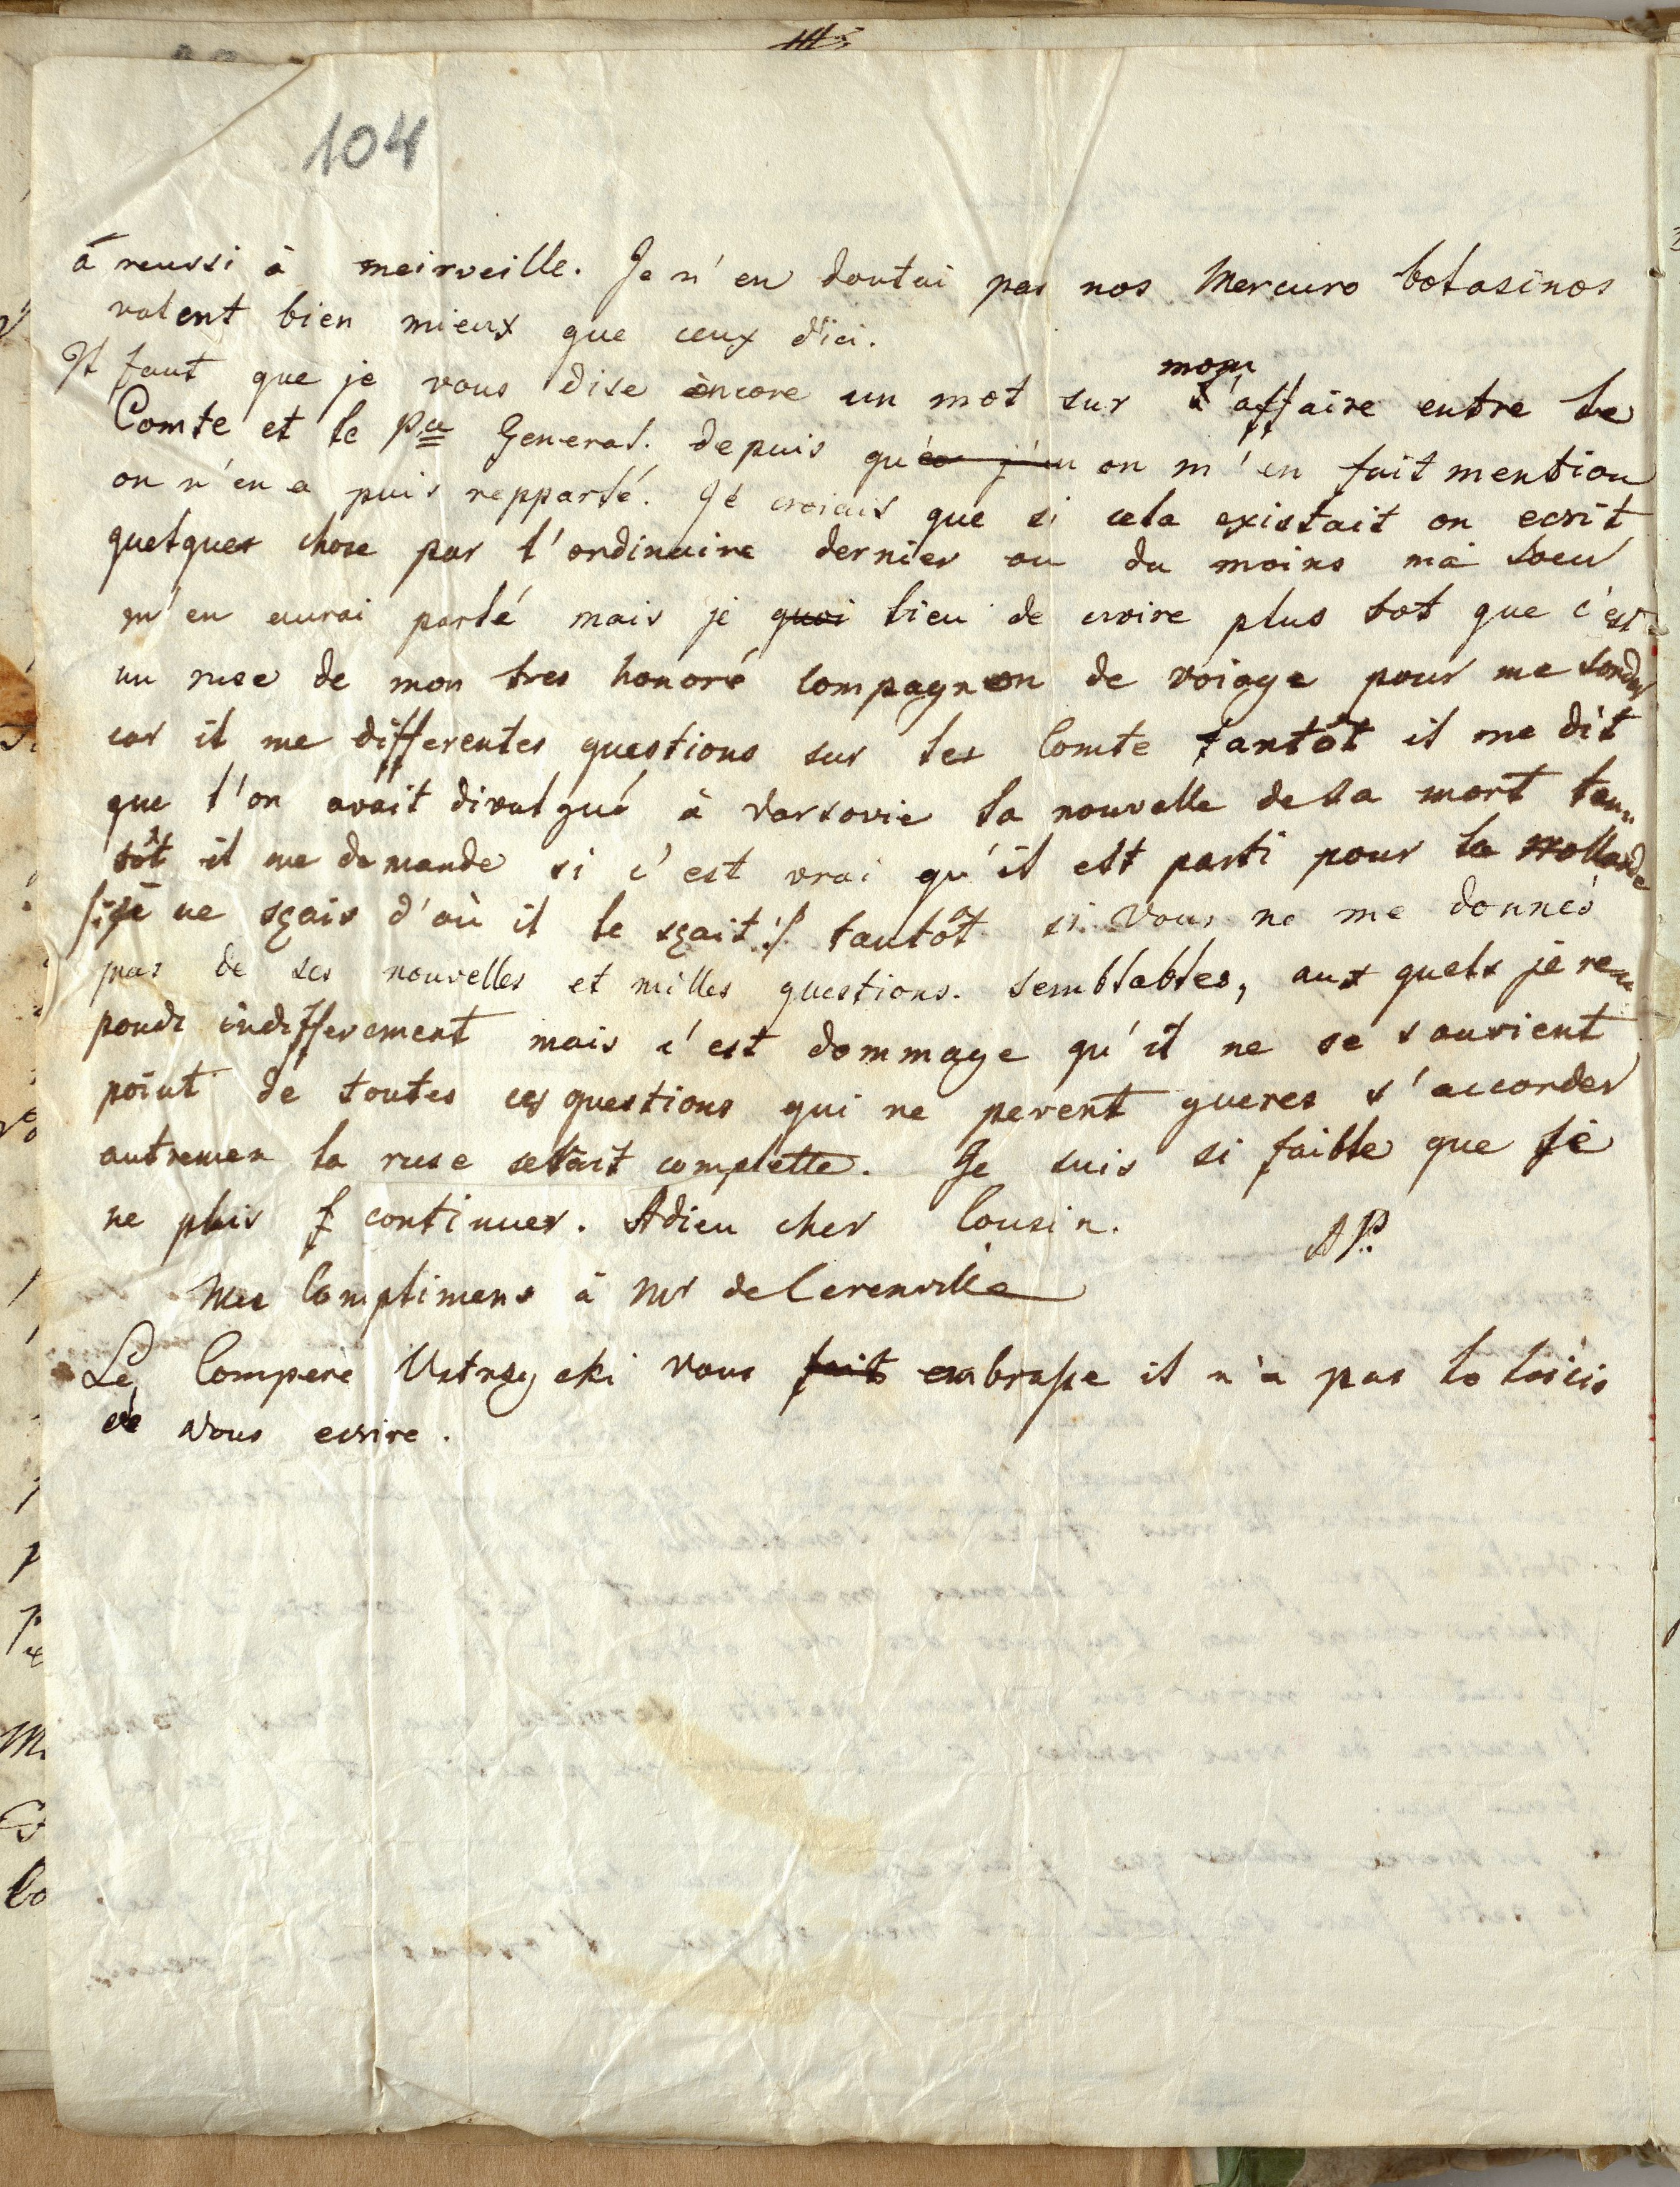 104
á reussi à meirveille. Je n'en doutai pas nos Mercuro botasinos
valent bien mieux que ceux d'ici.
Il faut que je vous dise encore un mot sur l'affaire entre le
Comte et le Pce General. depuis qu' on m'en fait mention
on n'en a puis repparlé. Je croiais que si cela existait on ecrit
quelques chose par l'ordinaire dernier ou du moins ma soeur
m'en aurai parlé mais je quoi lieu de croire plus tot que c'est
un ruse de mon tres honoré compagnon de voiage pour me sonder
car il me differentes questions sur les Comte tantôt il me dit
que l'on avait divulgué à Varsovie la nouvelle de sa mort tan=
tôt il me demande si c'est vrai qu'il est parti pour la Hollande
/:je ne sçais d'où il le sçait:/ tantôt si Vous ne me donnés
pas de ses nouvelles et milles questions. semblables, aux quels je re=
ponds indifferement mais c'est dommage qu'il ne se souvient
point de toutes ces questions qui ne pevent gueres s'accorder
autremen la ruse setait complette. Je suis si faible que je
ne puis f continuer. Adieu cher Cousin. AP.
Mes Complimens à Mr de Cerenville
Le Compere Ustrzycki vous fait embrasse il n'a pas le loisir
de Vous ecrire.